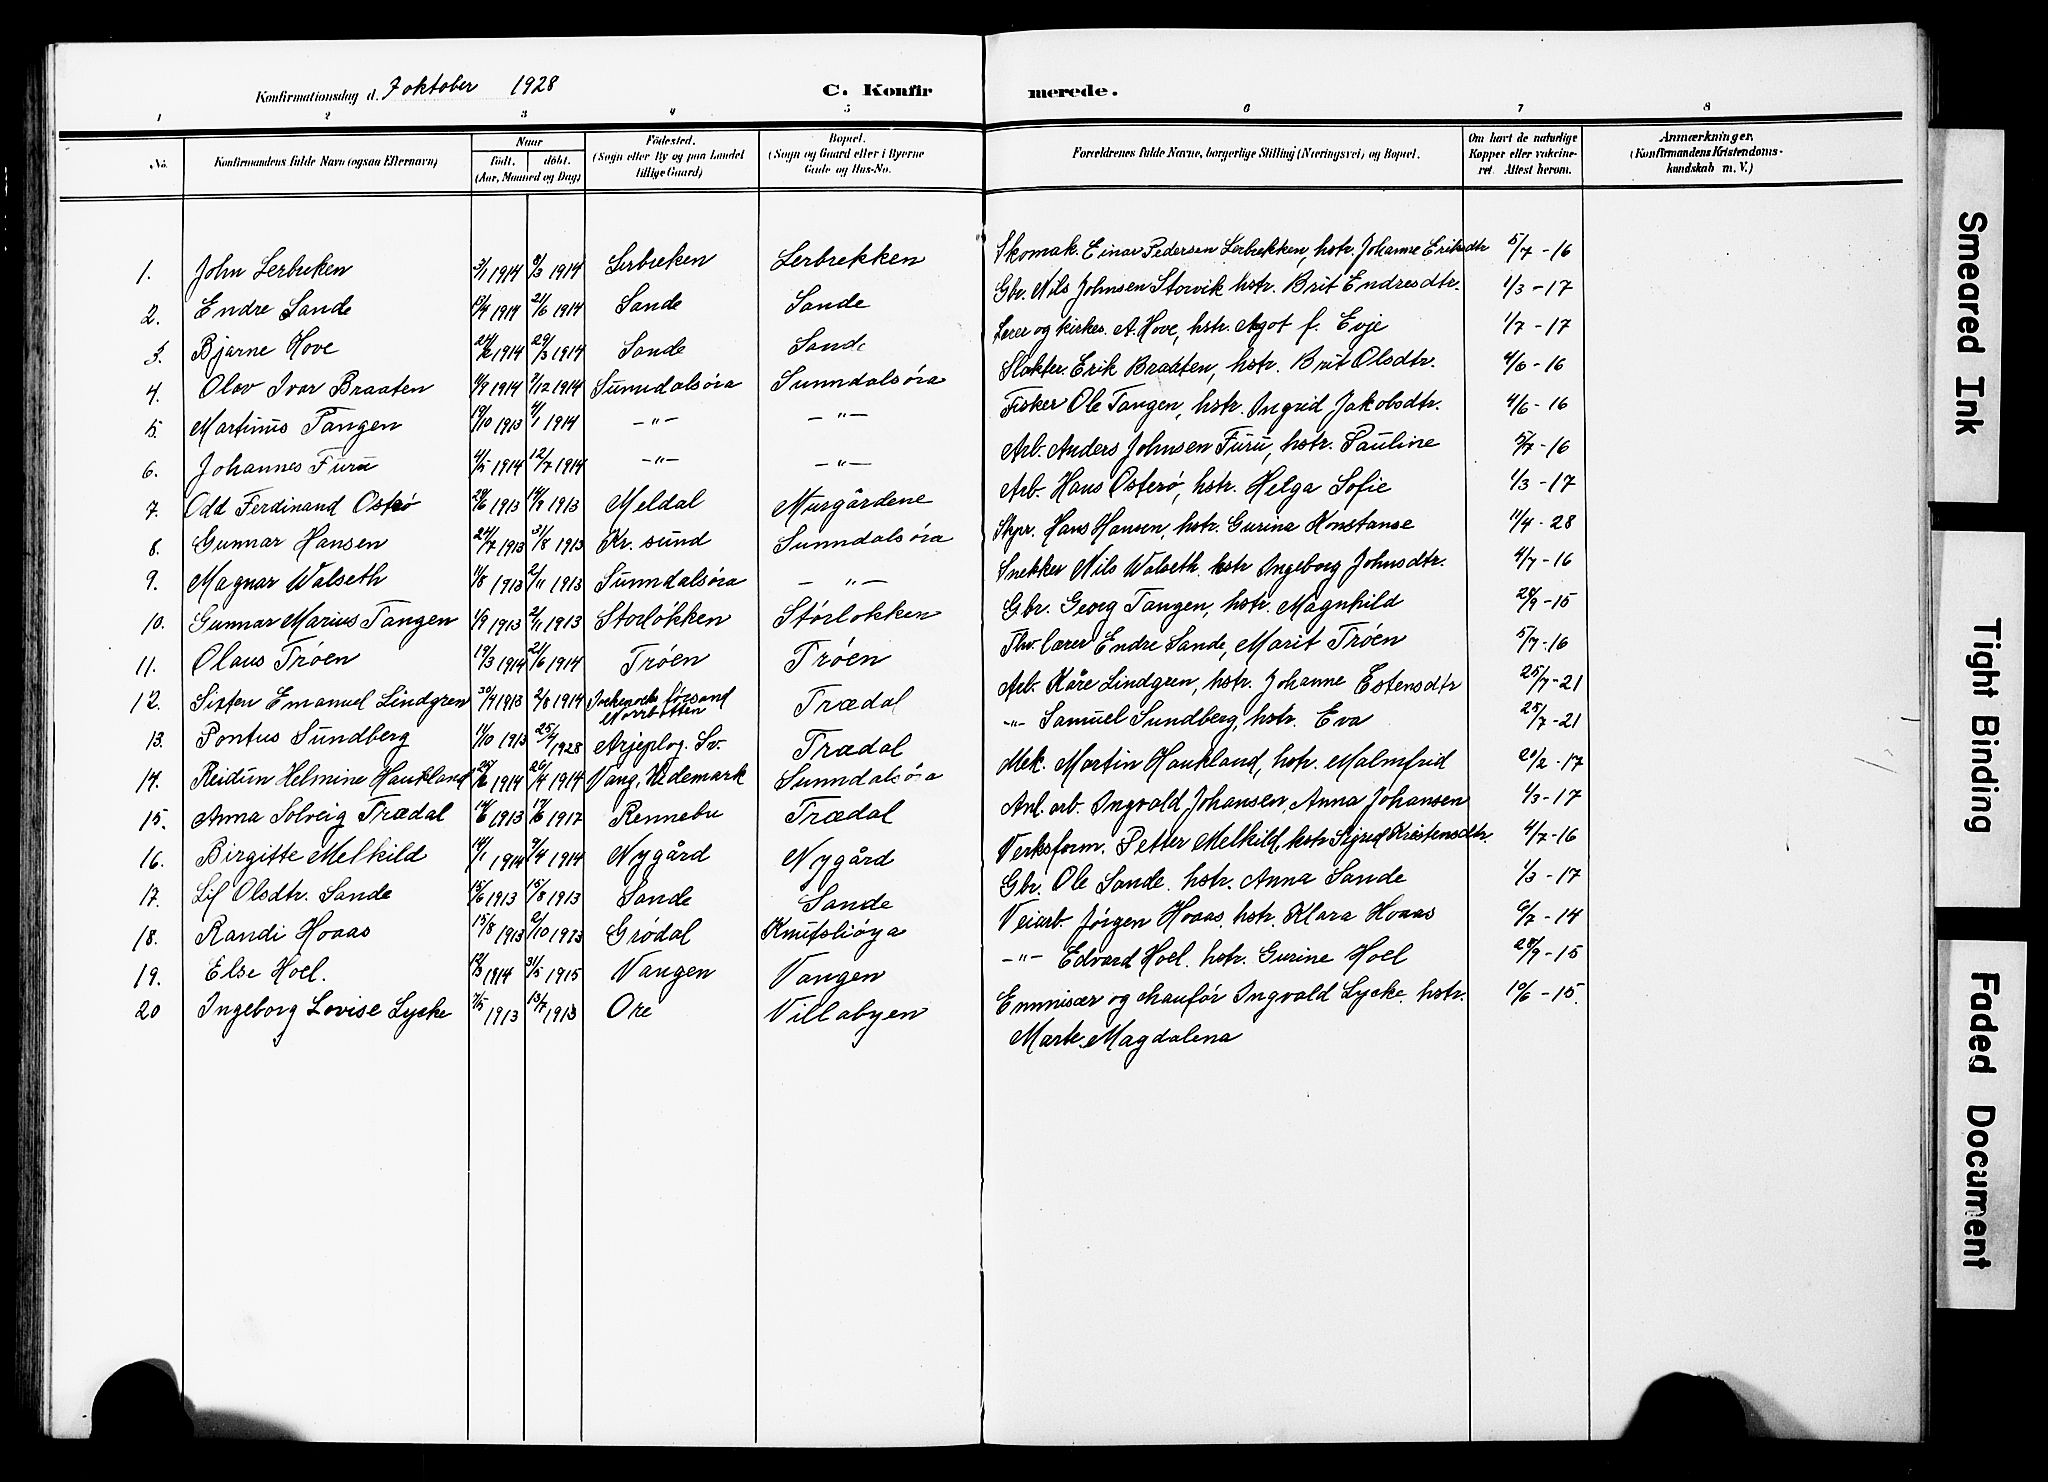 Konfirmationsdag d. 7 oktober 1928
C. Konfirmerede.
1 2 3 4 5 6 7 8
No. Konfirmandens fulde Navn (ogsaa Efternavn) Naar født. døbt. (Aar, Maaned og Dag) Fødested. (Sogn eller By og paa Landet tillige Gaard) Bopæl. (Sogn og Gaard eller i Byerne Gade og Hus-No. Forældrenes fulde Navne, borgerlige Stilling (Næringsvei) og Bopæl. Om havt de naturlige Kopper eller vakcineret. Attest herom. Anmærkninger. (Konfirmandens Kristendomskundskab m. V.)
1. John Lerbrekken 3/1 1914 8/3 1914 Lerbrekken Lerbrekken Skomak. Einar Pedersen Lerbrekken, hstr. Johanne Eriksdtr 5/7-16
2. Endre Sande 1914 21/6 1914 Sande Sande Gbr. Nils Johnsen Storvik hstr. Brit Endresdtr. 1/3-17
3. Bjarne Hove 24/2 1914 29/3 1914 Sande Sande Lærer og kirkes. A. Hove, hstr. Agot f. Evje 1/7-17
4. Olav Ivar Braaten 1/9 1914 /12 1914 Sunndalsøra Sunndalsøra Slakter Erik Braaten, hstr. Brit Olsdtr. 4/6-16
5. Martinus Tangen 19/10 1913 4/1 1914 -"- -"- Fisker Ole Tangen, hstr. Ingrid Jakobsdtr. 4/6-16
6. Johannes Furu 4/5 1914 12/7 1914 -"- -"- Arb. Anders Johnsen Furu, hstr. Pauline 5/7-16
7. Odd Ferdinand Osterø 28/6 1913 14/9 1913 Meldal Musgårdene Arb. Hans Osterø, hstr. Helga Sofie 1/3-17
8. Gunnar Hansen 24/7 1913 31/8 1913 Kr. sund Sunndalsøra Styr. Hans Hansen, hstr. Gurina Konstanse 11/4-28
9. Magnar Walseth 11/8 1913 2/11 1913 Sunndalsøra -"- Snekker Nils Walseth. hstr Ingeborg Johnsdtr. 4/7-16
10. Gunnar Marius Tangen 1/9 1913 2/11 1913 Storløkken Storløkken Gbr. Georg Tangen, hstr. Magnhild 28/9-15
11. Olaus Trøen 19/3 1914 21/6 1914 Trøen Trøen Thv. lærer Endre Sande, Marit Trøen 5/7-16
12. Sixten Emanuel Lindgren 30/4 1913 2/8 1914 Norrbotten Trædal Arb. Kåre Lindgren, hstr. Johanne Estensdtr 25/7-21
13. Pontus Sundberg 11/10 1913 25/4 1928 Arjeplog. Sv. Trædal -"- Samuel Sundberg, hstr. Eva 25/7-21
14. Reidun Helmine Haukland 27/2 1914 26/4 1914 Vang, Hedemark Sunndalsøra Mek. Martin Haukland, hstr. Malmfrid 20/2-17
15. Anna Solveig Trædal 14/6 1913 17/6 1917 Rennebu Trædal Anl. arb. Ingvald Johansen, Anna Johansen 1/3-17
16. Birgitte Melkild 14/1 1914 9/4 1914 Nygård Nygård Verksform. Petter Melkild, hstr Sigrid Kristensdtr. 4/7-16
17. Lif Olsdtr. Sande 15/6 1913 15/8 1913 Sande Sande Gbr. Ole Sande. hstr. Anna Sande 1/3-17
18. Randi Hoaas 15/8 1913 2/10 1913 Grødal Knutsliøya Veiarb. Jørgen Hoaas, hstr. Klara Hoaas 6/7-14
19. Else Hoel. 12/3 1914 31/5 1915 Vangen Vangen -"- Edvard Hoel. hstr. Gurine Hoel 28/9-15
20 Ingeborg Lovise Lycke 7/5 1913 13/7 1913 Øre Villabyen Emmisær og chaufør Ingvald Lycke, hstr. 10/6-15.
Marte Magdalena
Smeared Ink
Tight Binding
Faded Document